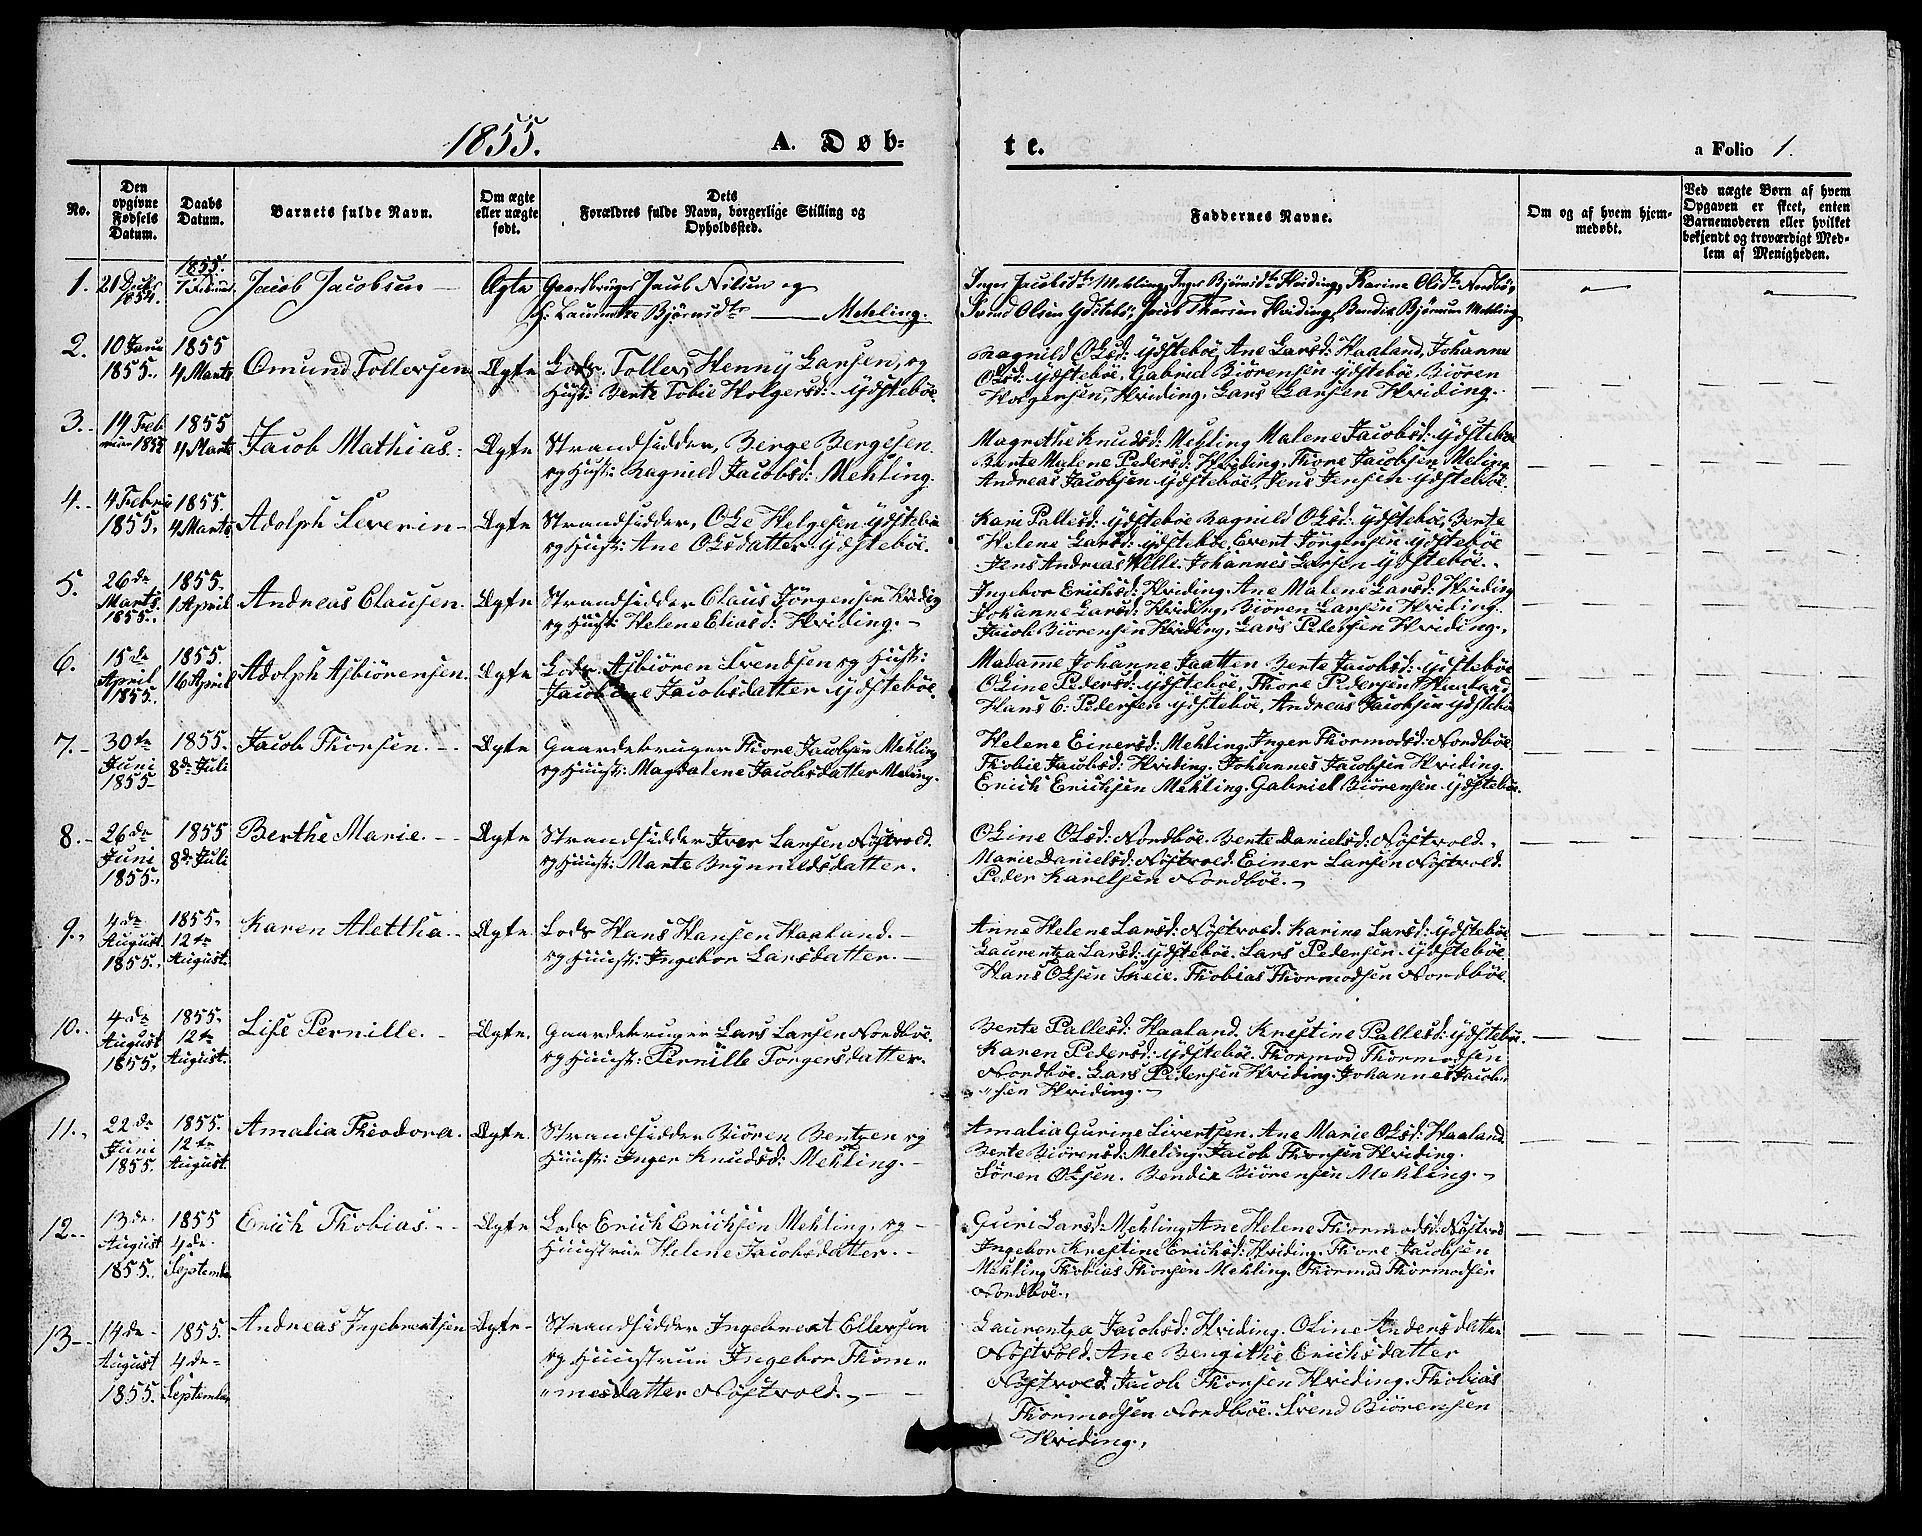 1855.
A. Døb=
te.
a Folio 1.
No.
Den opgivne Fødsels Datum.
Daabs Datum.
Barnets fulde Navn.
Om ægte eller uægte født.
Dets Forældres fulde Navn, borgerlige Stilling og Opholdssted.
Faddernes Navne.
Om og af hvem hjemmedøbt.
Ved uægte Børn af hvem Opgaven er skeet, enten Barnemoderen eller hvilket bekjendt og troværdigt Medlem af Menigheden.
1. 21 1854. 1855. 7 Jacob Jacobsen Ægte Jacob Nilsen og
H: Laurentse Bjørnsdtr Mehling.
Inger Jacobsdtr Mehling, Inger Bjørnsdtr Hviding, Karine Olsdtr Nordbø,
Svend Olsen Ydstebø, Jacob Thorsen Hviding, Bendix Bjørnsen Mehling
2. 10 Janu 1855. 1855 4 Marts Omund Tollersen Ægte Lods. Tollers Henny Larsen, og
Hust: Berte Tobie Holgersd: Ydstebøe
Ragnild Olsd: Ydstebøe, Ane Larsd: Haaland, Johanne
Olsd: Ydstebøe, Gabriel Biørensen Ydstebøe, Biøren
Hviding, Lars Larsen Hviding.
3. 14 Feb 1855 1855 4 Marts Jacob Mathias. Ægte Strandsidder, Berge Bergesen
og Hust: Ragnild Jacobsd: Mehling.
Magrethe Knudsd: Mehling Malene Jacobsd: Ydstebøe
Berte Malene Pedersd: Hviding, Thore Jacobsen Meling
Andreas Jacobsen Ydstebøe, Jens Jensen Ydstebøe.
4. 4 Febru 1855. 1855. 4 Marts Adolph Severin Ægte Strandsidder, Ole Helgesen Ydstebøe
og Hust: Ane Olsdatter Ydstebøe.
Kari Pallesd: Ydstebøe Ragnild Olsd: Ydstebøe, Berte
Helene Larsd: Ydstebøe, Evert Jørgensen Ydstebøe
Jens Andreas Helle. Johannes Larsen Ydstebøe.
5. 26de Marts 1855. 1855. 1 April Andreas Clausen. Ægte Strandsidder Claus Jørgensen
og Hust: Helene Eliasd: Hviding.
Ingebor Erichsd: Hviding, Ane Malene Larsd: Hviding
Johanne Larsd: Hviding, Biøren Larsen Hviding.
Jacob Biørensen Hviding, Lars Pedersen Hviding.
6. 15de April 1855. 1855. 16 April Adolph Asbiörensen. Ægte Lods. Asbiören Svendsen og Hust:
Jacobine Jacobsdatter Ydstebøe.
Madame Johanne Jaatten Berte Jacobsd: Ydstebøe
Oline Pedersd: Ydstebøe, Thore Pedersen Haaland
Hans C: Pedersen Ydstebøe, Andreas Jacobsen Ydstebøe
7. 30te Juni 1855 1855. 8de Juli Jacob Thorsen. Ægte Gaardebruger Thore Jacobsen Mehling
og Huust: Magdalene Jacobsdatter Meling.
Helene Einersd: Mehling. Inger Thormodsd: Nordbøe
Thobie Jacobsd: Hviding. Johannes Jacobsen Hviding.
Erich Erichsen Mehling. Gabriel Biørensen Ydstebøe.
8. 26de Juni 1855. 1855 8de Juli Berthe Marie. Ægte Strandsidder Iver Larsen Nøstvold.
og Huust: Marte Brynnildsdatter.
Oline Olsd: Nordbøe. Berte Danielsd: Nøstvold.
Marie Danielsd: Nøstvold. Einer Larsen Nøstvold.
Peder Karelsen Nordbøe.
9. 4de August 1855. 1855. 12te August. Karen Alettha. Ægte Lods Hans Hansen Haaland.
og Huust: Ingebor Larsdatter.
Anne Helene Larsd: Nøstvold. Karine Larsd: Ydstebøe
Laurentza Larsd: Ydstebøe. Lars Pedersen Ydstebøe.
Hans Olsen Skeie. Thobias Thormodsen Nordbøe.
10. 4de August 1855. 1855. 12te August. Lise Pernille. Ægte. Gaardebruger Lars Larsen Nordbøe.
og Huust: Pernille Torgersdatter.
Berte Pallesd: Haaland. Krestine Pallesd: Ydstebøe.
Karen Pedersd: Ydstebøe. Thormod Thormodsen
Nordbøe. Lars Pedersen Hviding. Johannes Jacob-
"sen Hviding.
11. 22de Juni 1855. 1855. 12te August. Amalia Theodora. Ægte. Strandsidder Biören Bentzen og
Huust: Inger Knudsd: Mehling.
Amalia Gurine Sivertsen. Ane Marie Olsd: Haaland.
Berte Biörensd: Meling. Jacob Thorsen Hviding.
Sören Olsen. Bendix Biörensen Mehling.
12. 13de August 1855. 1855 4de September Erich Thobias. Ægte Lods Erich Erichsen Mehling. og
Huustrue Helene Jacobsdatter.
Guri Larsd: Mehling, Ane Helene Thormodsd: Nøstvold
Ingebor Krestine Erichsd: Hviding. Thore Jacobsen
Mehling Thobias Thorsen Mehling. Thormod Thormodsen
Nordbøe.
13 14de August 1855. 1855. 4de September Andreas Ingebretsen Ægte Strandsidder Ingebret Ellersen
og Huustrue Ingebor Thom"
"mesdatter Nøstvold.
Laurentza Jacobsd: Hviding. Oline Andersdatter
Nøstvold. Ane Bengithe Erichsdatter
Nøstvold. Jacob Thorsen Hviding. Thobias
Thormodsen Nordbøe. Svend Biörensen
Hviding.